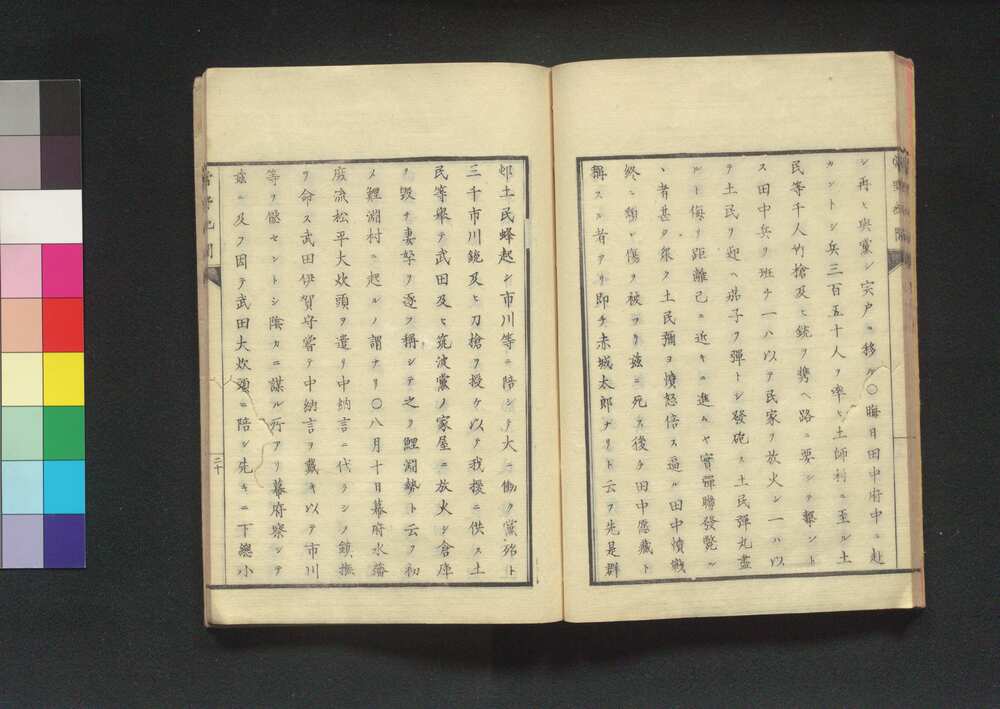 シ再ヒ與黨シ宍戸ニ移ル〇晦日田中府中ニ赴
カントシ兵三百五十人ヲ率ヒ土師利ニ至ル土
民等千人竹槍及ヒ銃ヲ携ヘ路ニ要シテ撃ント
ス田中兵ヲ班チ一ハ以テ民家ヲ放火シ一ハ以
テ土民ヲ迎ヘ茄子ヲ彈トシ發砲ス土民彈丸盡
ルト侮リ距離已ニ近キニ進ムヤ實彈聯發斃ル
ヽ者甚タ衆ク土民彌ヨ憤怒倍ス逼ル田中憤戰
終ニ頭ニ傷ヲ被フリ茲ニ死ス後チ田中愿藏ト
稱スル者アリ即チ赤城太郎ナリト云フ先是群
邨土民蜂起シ市川等ニ陪シテ大ニ働ク黨殆ト
三千市川銃及ヒ刀槍ヲ授ケ以テ我援ニ供ス土
民等舉テ武田及ヒ筑波黨ノ家屋ニ放火シ倉庫
ヲ毀チ妻孥ヲ逐フ稱シテ之ヲ鯉淵勢ト云フ初
メ鯉淵村ニ起ルノ謂ナリ〇八月十日幕府水藩
庶流松平大炊頭ヲ遣リ中納言ニ代ラシノ鎮撫
ヲ命ス武田伊賀守嘗テ中納言ヲ戴キ以テ市川
等ヲ
セントシ陰カニ謀ル所アリ幕府察シテ
茲ニ及フ因テ武田大炊頭ニ陪シ先キニ下總小
二十